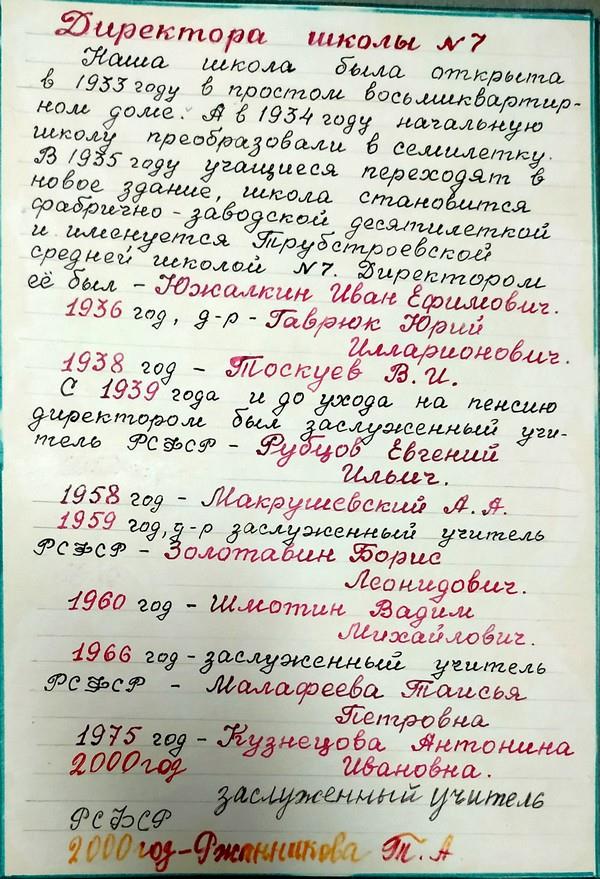 Директора школы №7
Наша школа была открыта
в 1933 году в простом восьмиквартир-
ном доме. А в 1934 году начальную
школу преобразовали в семилетку.
В 1935 году учащиеся переходят в
новое здание, школа становится
фабрично-заводской десятилеткой
и именуется Трубстроевской
средней школой №7. Директором
её был - Южалкин Иван Ефимович.
1936 год, д-р - Гаврюк Юрий
Илларионович.
1938 год - Тоскуев В. И.
С 1939 года и до ухода на пенсию
директором был заслуженный учи-
тель РСФСР - Рубцов Евгений
Ильич.
1958 год - Макрушевский А. А.
1959 год, д-р заслуженный учитель
РСФСР - Золотавин Борис
Леонидович.
1960 год - Шмотин Вадим
Михайлович.
1966 год - заслуженный учитель
РСФСР - Малафеева Таисья
Петровна
1975 год - Кузнецова Антонина
2000 год Ивановна.
заслуженный учитель
РСФСР
2000 год - Ржанникова Т. А